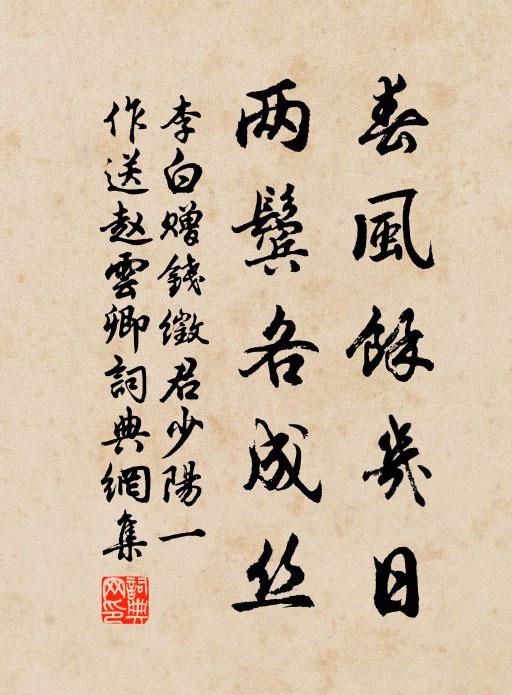 春風餘幾日
两鬢各成丝
李白赠錢徵君少陽一
作送赵雲卿詞典網集
詞典网印